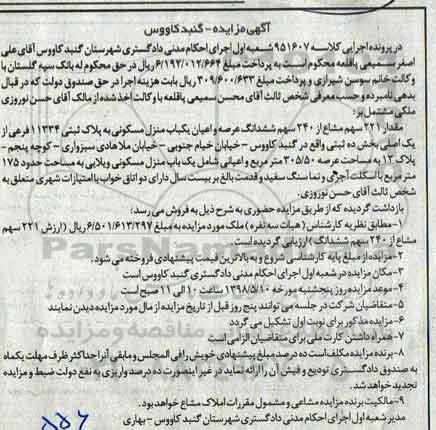 آگهی مزایده - گنبد کاووس
در پرونده اجرایی کلاسه ۹۵۱۶۰۷ شعبه اول اجرای احکام مدنی دادگستری شهرستان گنبد کاووس آقای علی
اصغر سمیعی یاقلعه محکوم است به پرداخت مبلغ ۶/۱۹۲/۰۱۲/۶۶۴ ریال در حق محکوم له بانک سپه گلستان با
وکالت خانم سوسن شیرازی و پرداخت مبلغ ۳۰۹/۶۰۰/۶۳۳ ریال بابت هزینه اجرا در حق صندوق دولت که در قبال
بدهی نامبرده و حسب معرفی شخص ثالث آقای محسن سمیعی یاقلعه با وکالت اخذ شده از مالک آقای حسن نوروزی
ملکی مشتمل بر:
مقدار ۲۲۱ سهم مشاع از ۲۴۰ سهم ششدانگ عرصه و اعیان یکباب منزل مسکونی به پلاک ثبتی ۱۱۳۳۴ فرعی از
یک اصلی بخش ده ثبتی واقع در گنبد کاووس - خیابان خیام جنوبی - خیابان ملا هادی سبزواری - کوچه پنجم -
پلاک ۱۳ به مساحت عرصه ۳۰۵/۵۰ متر مربع و اعیانی شامل یک باب منزل مسکونی ویلایی به مساحت حدود ۱۷۵
متر مربع با اسکلت آجری و نما سنگ سفید و قدمت بالغ بر بیست سال دارای دو اتاق خواب با امتیازات شهری متعلق به
شخص ثالث آقای حسن نوروزی.
بازداشت گردیده که از طریق مزایده حضوری به شرح ذیل به فروش می رسد؛
۱- مطابق نظریه کارشناس (هیات سه نفره) ملک مورد مزایده به مبلغ ۶/۵۰۱/۶۱۳/۲۹۷ ریال (ارزش ۲۲۱ سهم
مشاع از ۲۴۰ سهم ششدانگ) ارزیابی گردیده است.
۲- مزایده از مبلغ پایه کارشناسی شروع و به بالاترین قیمت پیشنهادی فروخته می شود.
۳- مکان مزایده در شعبه اول اجرای احکام مدنی دادگستری گنبد کاووس است
۴- موعد مزایده روز پنجشنبه مورخه ۱۳۹۸/۵/۱۰ ساعت ۱۰ الی ۱۱ صبح است
۵- متقاضیان شرکت در جلسه می توانند پنج روز قبل از تاریخ مزایده از مال مورد مزایده دیدن نمایند
۶- مزایده مذکور برای نوبت اول تشکیل می گردد
۷- همراه داشتن کارت ملی برای متقاضیان الزامی است
۸- برنده مزایده مکلف است ده درصد مبلغ پیشنهادی خویش را فی المجلس و مابقی آنرا حداکثر ظرف مهلت یکماه
به صندوق دادگستری تودیع و فیش آن را ارائه نماید در غیر اینصورت ده درصد واریزی به نفع دولت ضبط و مزایده
تجدید خواهد شد.
۹- مالکیت برنده مزایده مشاعی و مشمول مقررات املاک مشاع خواهد بود.
مدیر شعبه اول اجرای احکام مدنی دادگستری شهرستان گنبد کاووس - بهاری